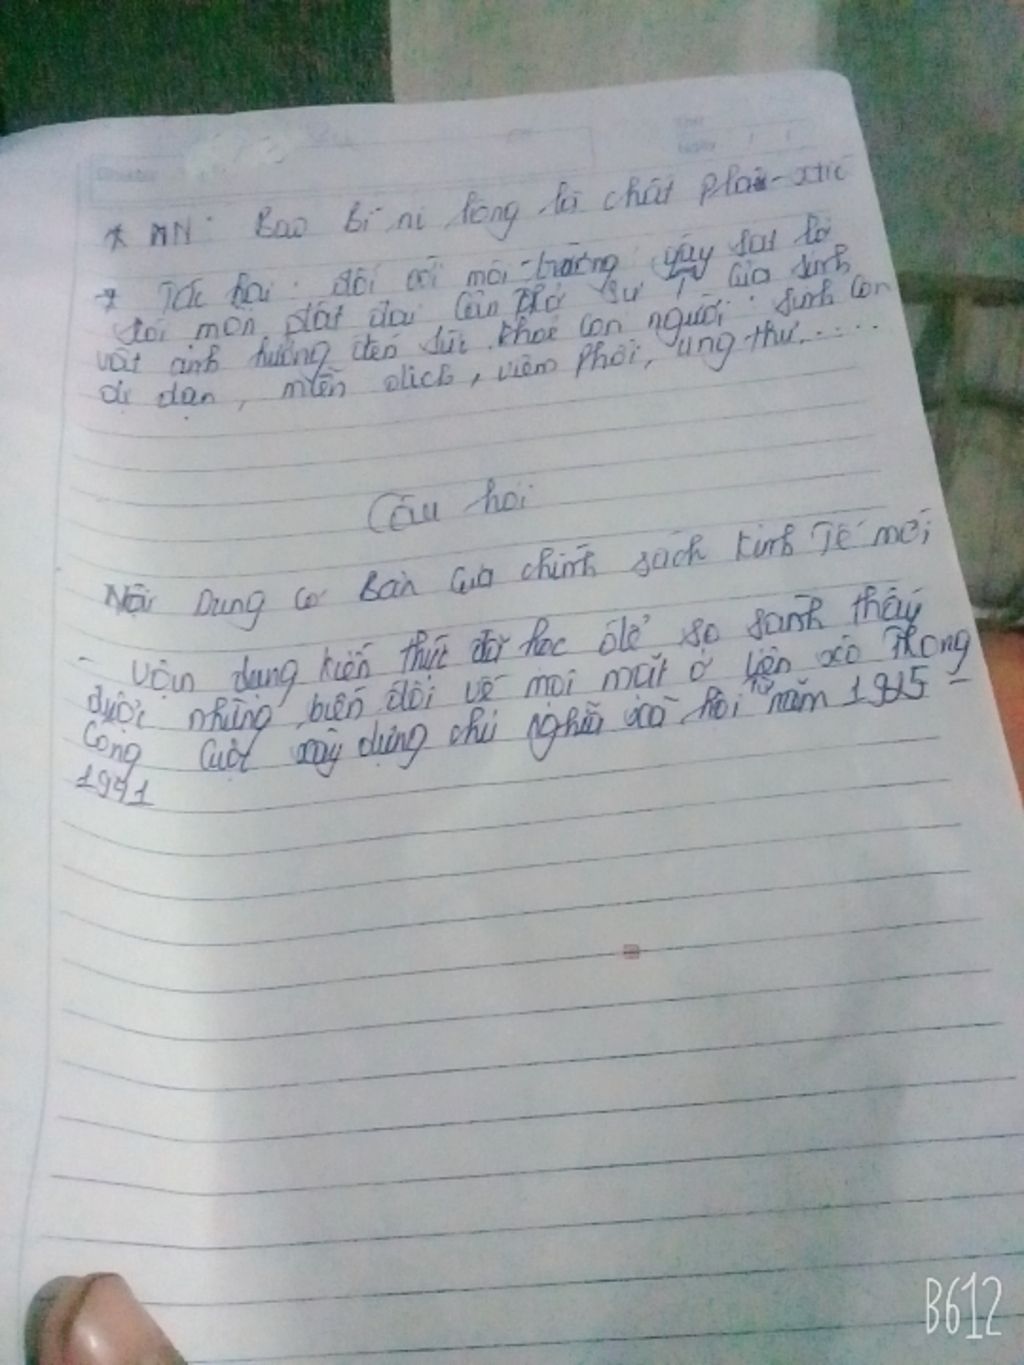 * NN: Bao bì ni lông là chất plas-xtic
* Tác hại: đối với môi trường gây sạt lở
sói mòn đất đai cản trở sự của sinh
vật ảnh hưởng đến sức khoẻ con người: sinh con
dị dạn, miễn dịch, viêm phổi, ung thư.....
Câu hỏi
Nội Dung cơ Bản của chính sách kinh Tế mới
- vận dụng kiến thức đã học để so sánh thấy
được những biến đổi về mọi mặt ở liên xô Trong
công cuộc xây dựng chủ nghĩa xã hội từ năm 1925 -
1941
B612